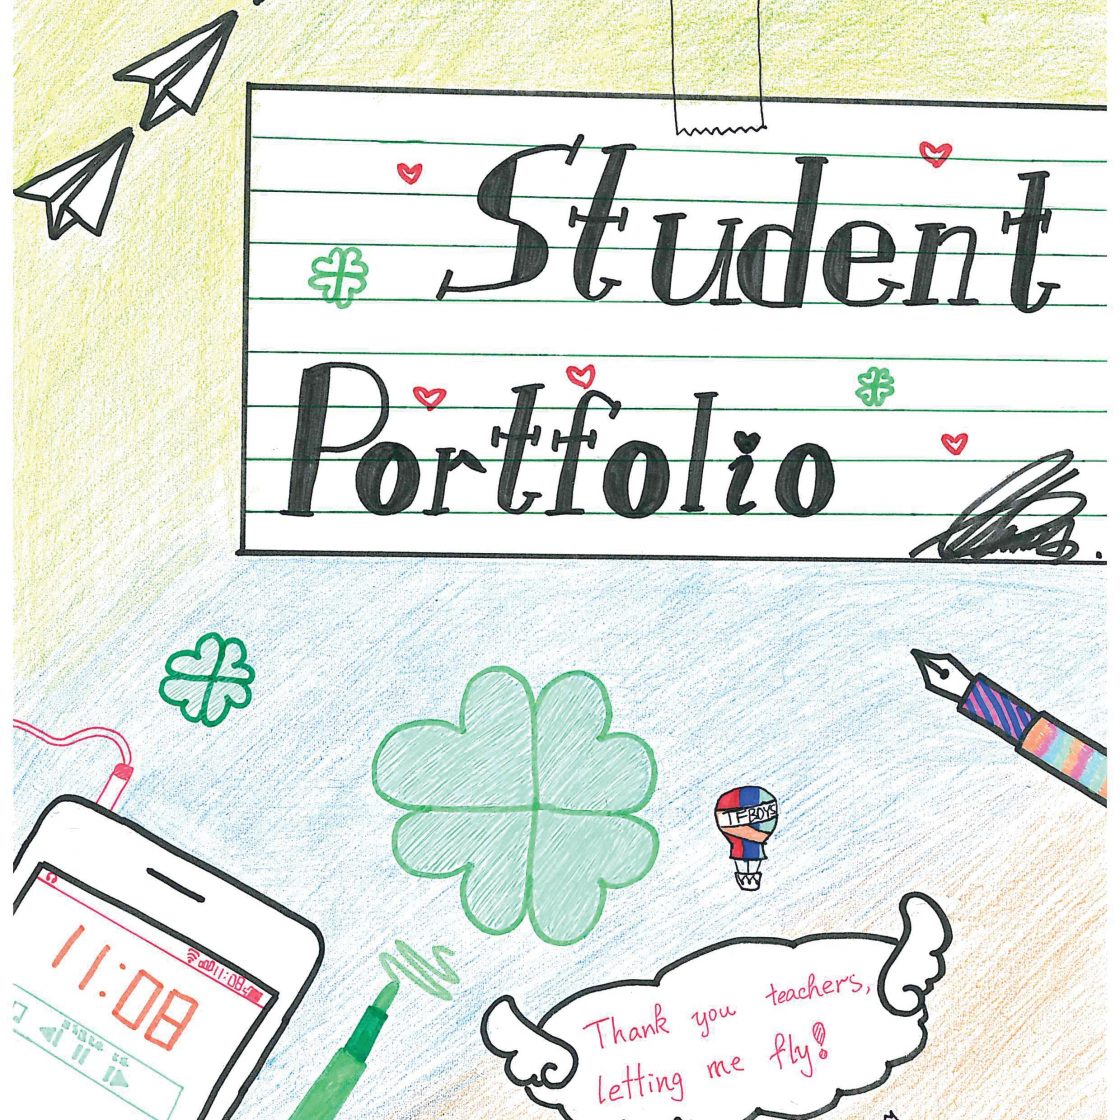 Student
Portfolio
TFBOYS
11:08
11:08
Thank you teachers,
letting me fly!